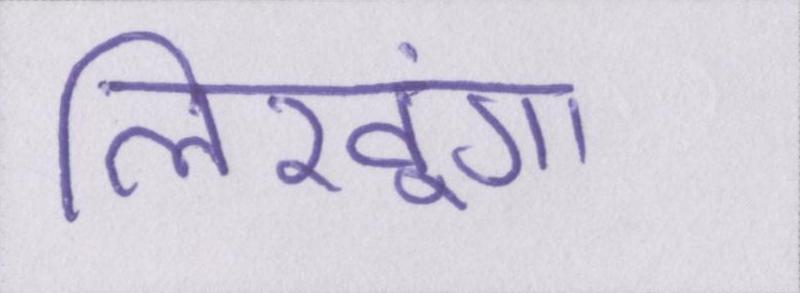 लिखूंगा